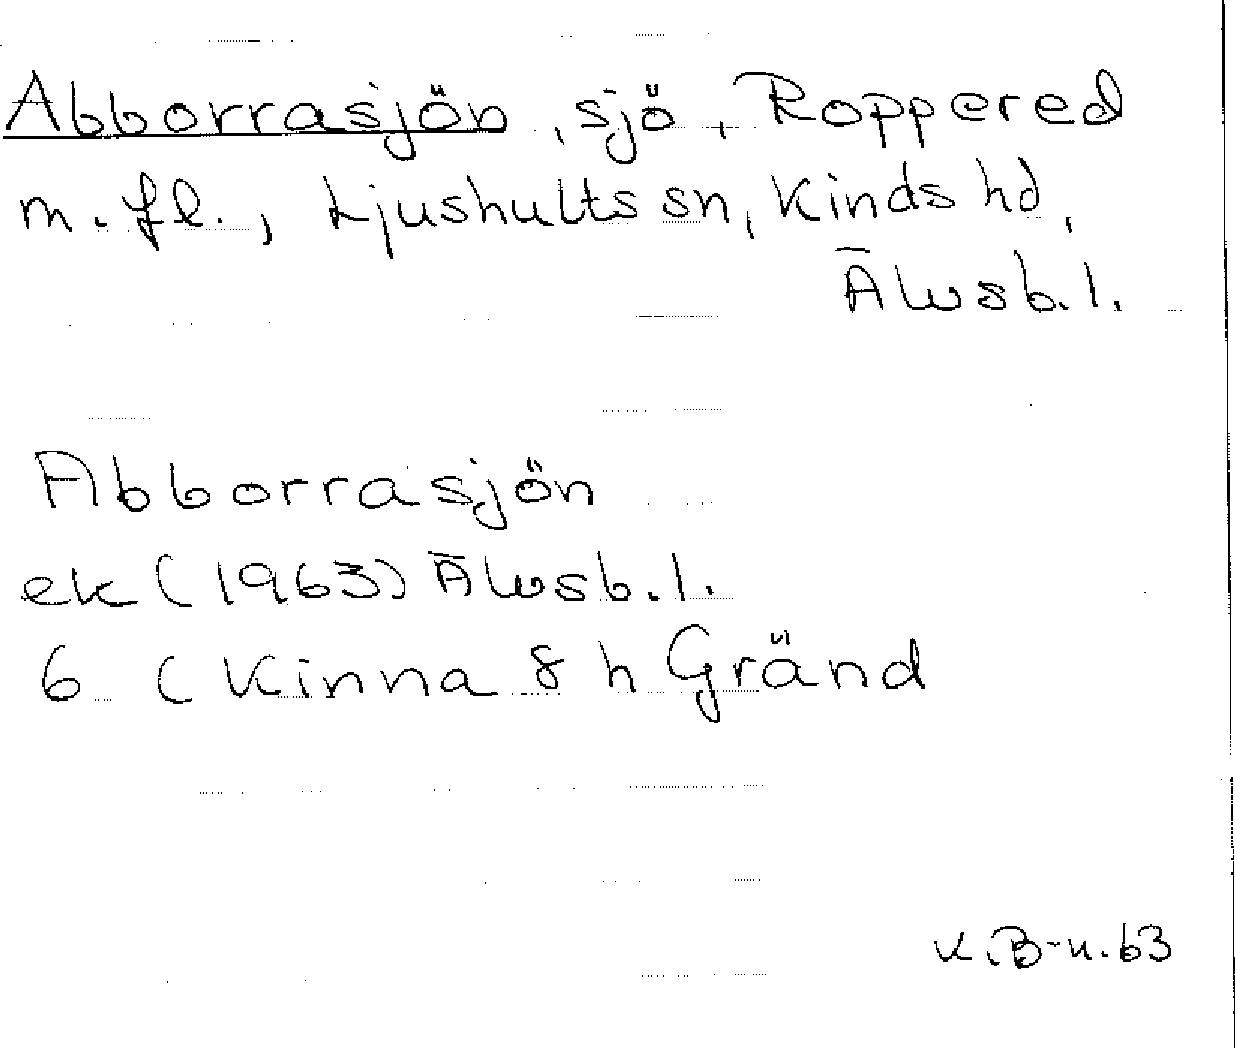 Abborrasjön, sjö, Roppered
m. fl., Ljushults sn, Kinds hd,
Älvsb. l.
Abborrasjön
ek (1963) Älvsb. l.
6 (Kinna 8 h Gränd
K. B-n. 63